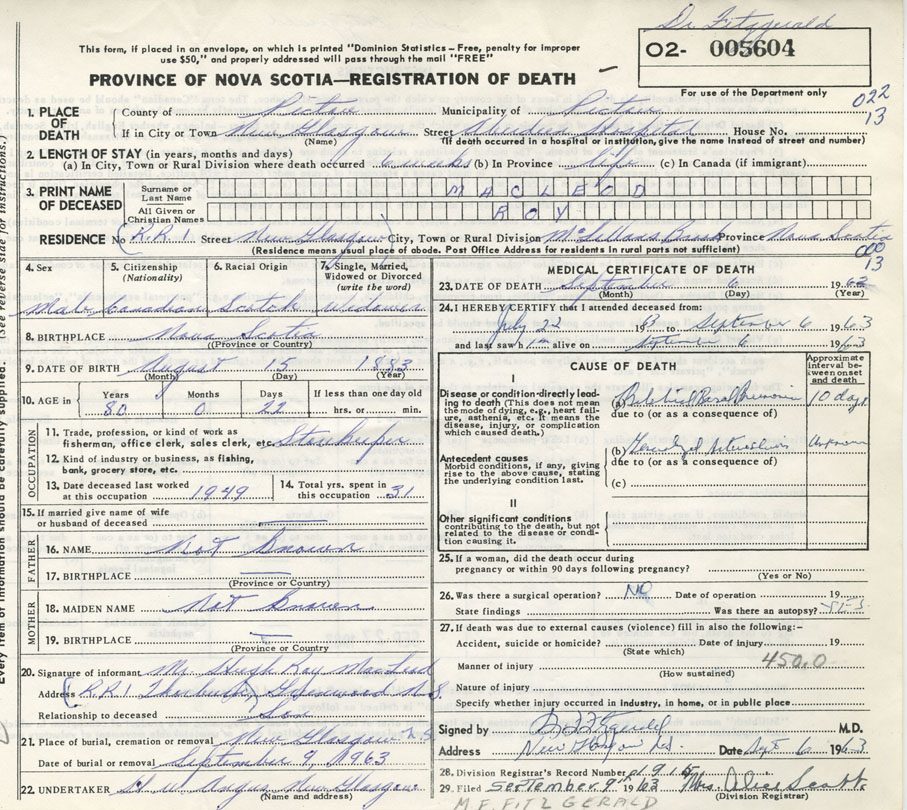 Dr. Fitzgerald
This form, if placed in an envelope, on which is printed "Dominion Statistics - Free, penalty for improper
use $50," and properly addressed will pass through the mail "FREE"
O2- 005604
PROVINCE OF NOVA SCOTIA—REGISTRATION OF DEATH
For use of the Department only
022
13
1. PLACE OF DEATH
County of Pictou Municipality of Pictou
If in City or Town New Glasgow Street Aberdeen Hospital House No.
(Name) (If death occurred in a hospital or institution, give the name instead of street and number)
2. LENGTH OF STAY (in years, months and days)
(a) In City, Town or Rural Division where death occurred 6 weeks (b) In Province life (c) In Canada (if immigrant)
3. PRINT NAME OF DECEASED
Surname or Last Name MACLEOD
All Given or Christian Names ROY
RESIDENCE No. R.R.1 Street New Glasgow City, Town or Rural Division McLellans Brook Province Nova Scotia
(Residence means usual place of abode. Post Office Address for residents in rural parts not sufficient)
000
13
4. Sex 5. Citizenship (Nationality) 6. Racial Origin 7. Single, Married, Widowed or Divorced (write the word)
Male Canadian Scotch widower
8. BIRTHPLACE Nova Scotia
(Province or Country)
9. DATE OF BIRTH August 15 1883
(Month) (Day) (Year)
10. AGE in Years Months Days If less than one day old
80 0 22 hrs. or min.
OCCUPATION
11. Trade, profession, or kind of work as
fisherman, office clerk, sales clerk, etc.
12. Kind of industry or business, as fishing,
bank, grocery store, etc.
13. Date deceased last worked
at this occupation 1949
14. Total yrs. spent in
this occupation 31
15. If married give name of wife
or husband of deceased
FATHER
16. NAME Not Known
17. BIRTHPLACE
(Province or Country)
MOTHER
18. MAIDEN NAME Not Known
19. BIRTHPLACE
(Province or Country)
20. Signature of informant Mr. Hugh Ray MacLeod
Address R.R.1 Thorburn N.S.
Relationship to deceased Son
21. Place of burial, cremation or removal New Glasgow N.S.
Date of burial or removal September 9, 1963
22. UNDERTAKER New Glasgow
(Name and address)
MEDICAL CERTIFICATE OF DEATH
23. DATE OF DEATH September 6 1963
(Month) (Day) (Year)
24. I HEREBY CERTIFY that I attended deceased from:
July 22 1963 to September 6 1963
and last saw him alive on September 6 1963
CAUSE OF DEATH
Approximate interval between onset and death
I
Disease or condition directly leading to death (This does not mean
the mode of dying, e.g., heart failure, asthenia, etc. It means the
disease, injury, or complication
which caused death.)
(a) 10 days
due to (or as a consequence of)
Antecedent causes
Morbid conditions, if any, giving
rise to the above cause, stating
the underlying condition last.
(b) unknown
due to (or as a consequence of)
(c)
II
Other significant conditions
contributing to the death, but not
related to the disease or condition causing it.
25. If a woman, did the death occur during
pregnancy or within 90 days following pregnancy?
(Yes or No)
26. Was there a surgical operation? NO Date of operation 19
State findings Was there an autopsy? YES
27. If death was due to external causes (violence) fill in also the following:-
Accident, suicide or homicide? Date of injury 19
(State which)
450.0
Manner of injury
(How sustained)
Nature of injury
Specify whether injury occurred in industry, in home, or in public place
Signed by M.D.
Address New Glasgow N.S. Date Sept 6 1963
28. Division Registrar's Record Number
29. Filed September 9th 1963 Mrs. Scott
(Division Registrar)
M.F. FITZGERALD
(See reverse side for instructions.)
Every item of information should be carefully supplied.